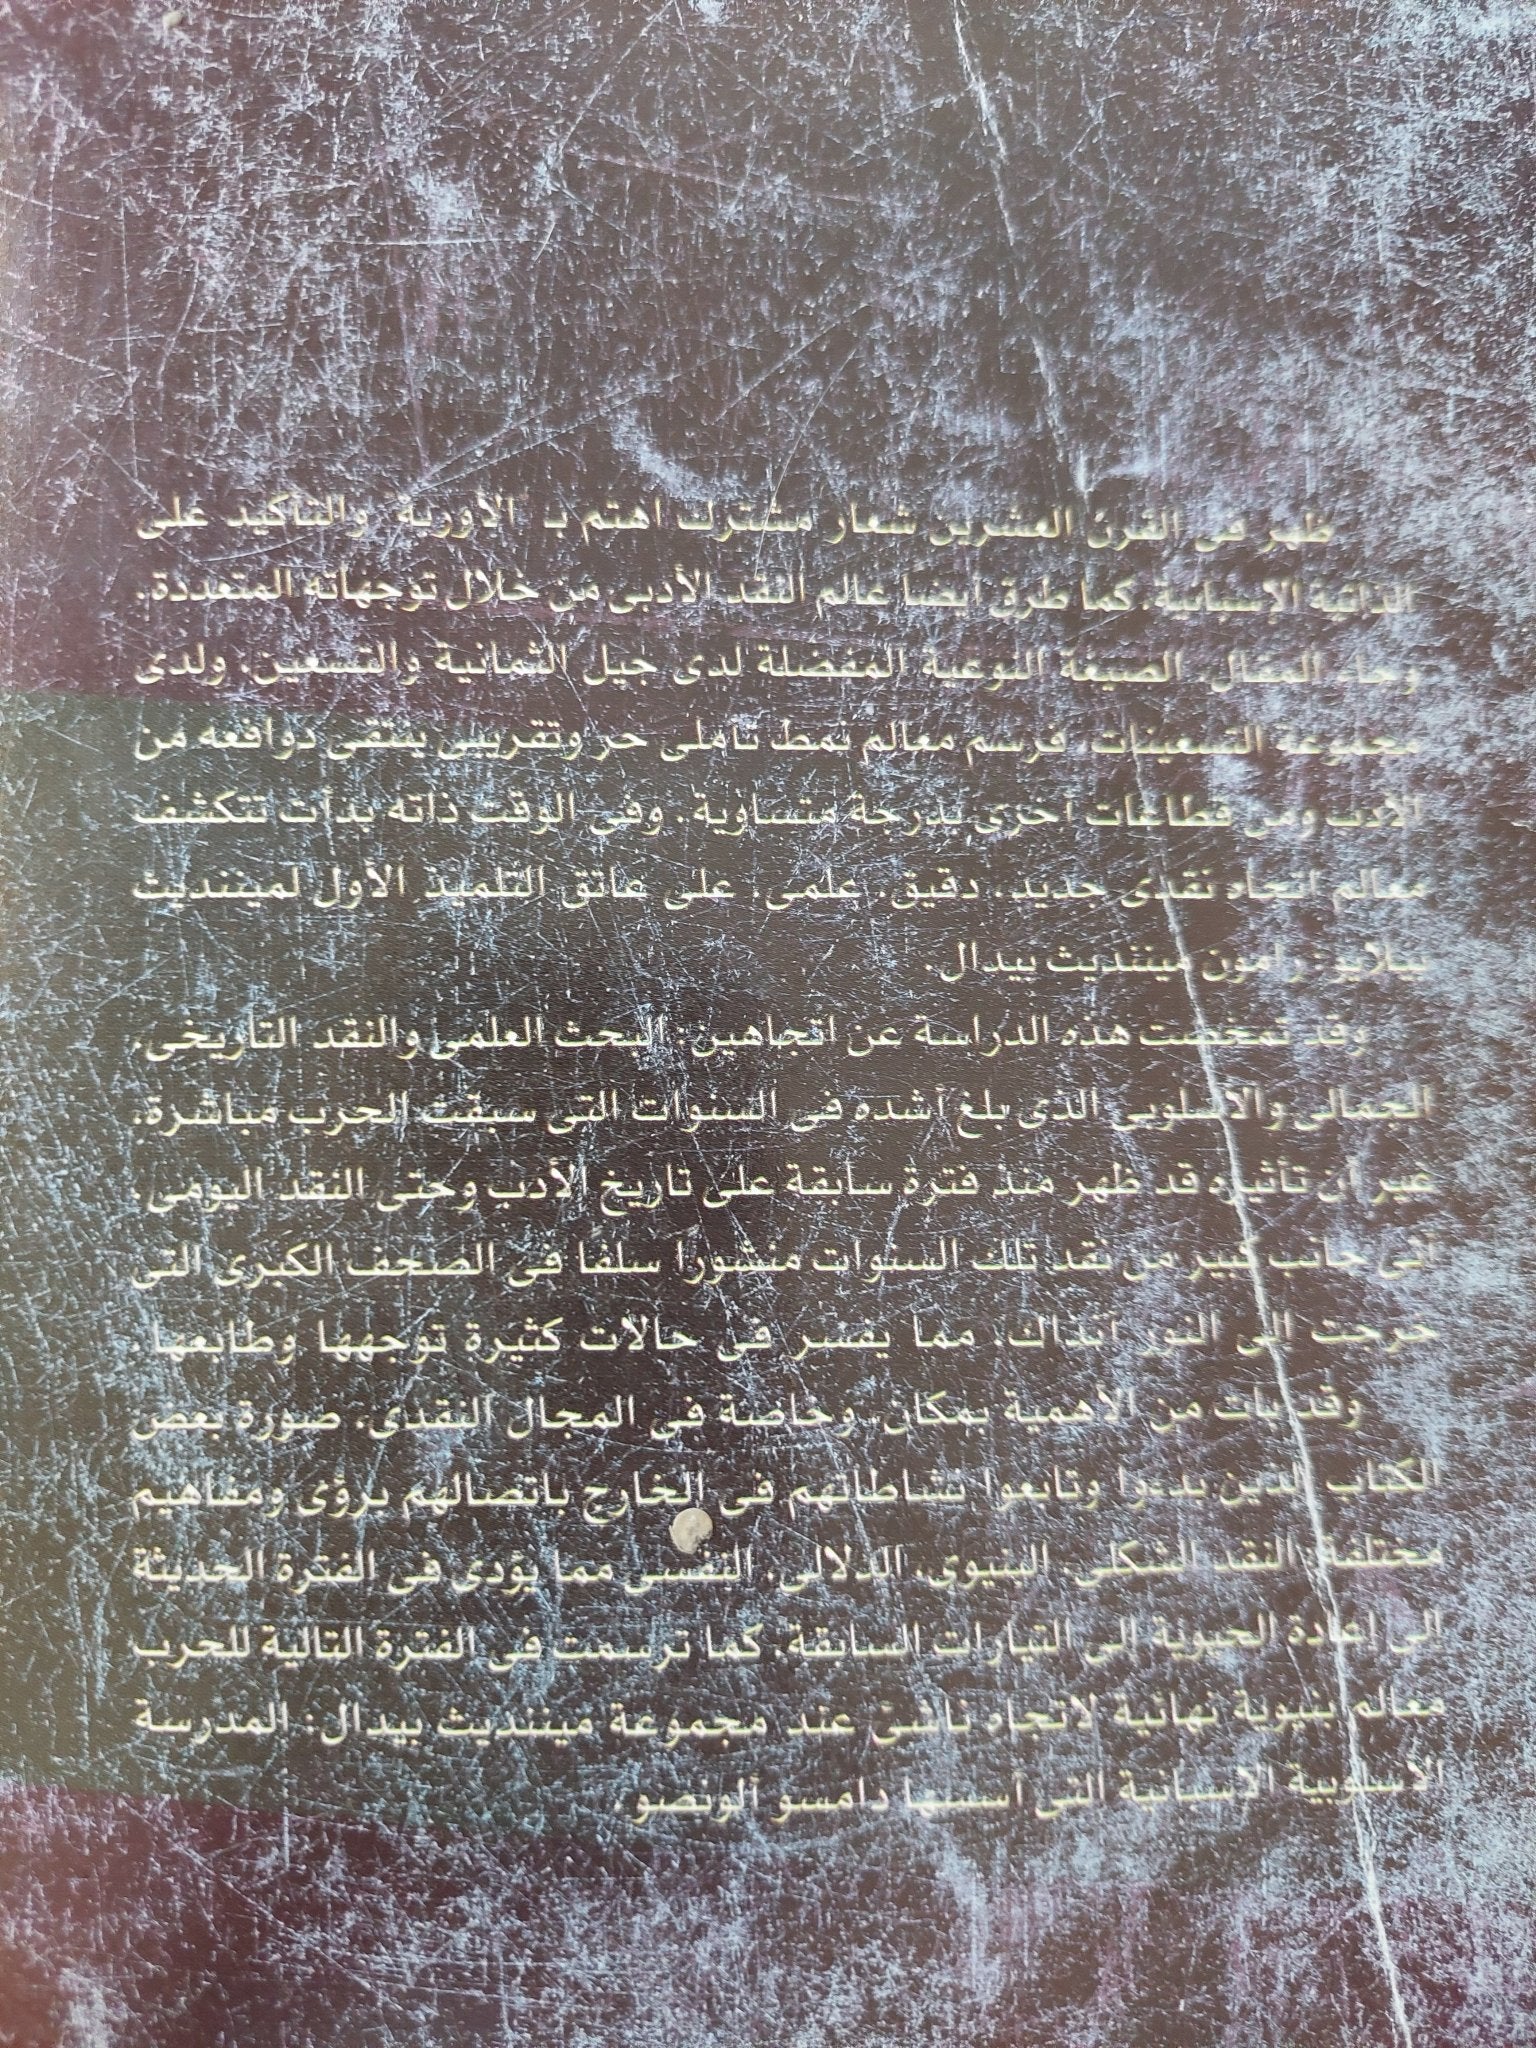 ظهر فى القرن العشرين شعار مشترك اهتم بـ الأوربة والتأكيد على
الذاتية الإسبانية، كما طرق أيضا عالم النقد الأدبى من خلال توجهاته المتعددة.
وجاء المقال، الصيغة النوعية المفضلة لدى جيل الثمانية والتسعين، ولدى
مجموعة التسعينات، فرسم معالم نمط تأملى حر وتقريبى ينتقى دوافعه من
الأدب ومن قطاعات أخرى بدرجة متساوية. وفى الوقت ذاته بدأت تتكشف
معالم اتجاه نقدى جديد، دقيق، علمى، على عاتق التلميذ الأول لمينندیث
بيلايو: رامون مينندیث بيدال.
وقد تمخضت هذه الدراسة عن اتجاهين: البحث العلمى والنقد التاريخى،
الجمالى والأسلوبى الذى بلغ أشده فى السنوات التى سبقت الحرب مباشرة،
غير أن تأثيره قد ظهر منذ فترة سابقة على تاريخ الأدب وحتى النقد اليومى،
أتى جانب كبير من نقد تلك السنوات منشورا سلفا فى الصحف الكبرى التى
خرجت إلى النور آنذاك، مما يفسر فى حالات كثيرة توجهها وطابعها.
وقد بات من الأهمية بمكان، وخاصة فى المجال النقدى، صورة بعض
الكتاب الذين بدءوا وتابعوا نشاطاتهم فى الخارج باتصالهم برؤى ومفاهيم
مختلفة: النقد الشكلى، البنيوى، الدلالى، النفسى مما يؤدى فى الفترة الحديثة
إلى إعادة الحيوية إلى التيارات السابقة، كما ترسمت فى الفترة التالية للحرب
معالم بنيوية نهائية لاتجاه ناشئ عند مجموعة مينندیث بيدال: المدرسة
الأسلوبية الأسبانية التى أسسها دامسو ألونصو.